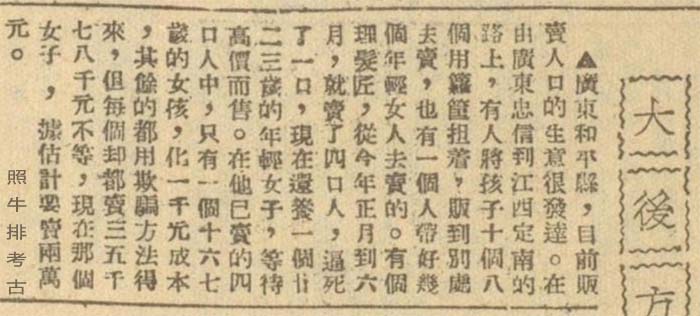 大後方
▲廣東和平縣，目前販
賣人口的生意很發達。在
由廣東忠信到江西定南的
路上，有人將孩子十個八
個用籮筐担着，販到別處
去賣，也有一個人帶好幾
個年輕女人去賣的。有個
理髮匠，從今年正月到六
月，就賣了四口人，逼死
了一口，現在還養一個廿
二三歲的年輕女子，等待
高價而售。在他已賣的四
口人中，只有一個十六七
歲的女孩，化一千元成本
，其餘的都用欺騙方法得
來，但每個却都賣三五千
七八千元不等，現在那個
女子，據估計要賣兩萬
元。
照牛排考古